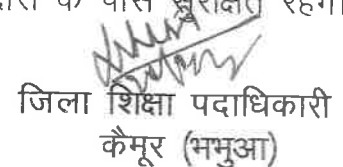 के पास सुरक्षित
जिला शिक्षा पदाधिकारी
कैमूर (भभुआ)